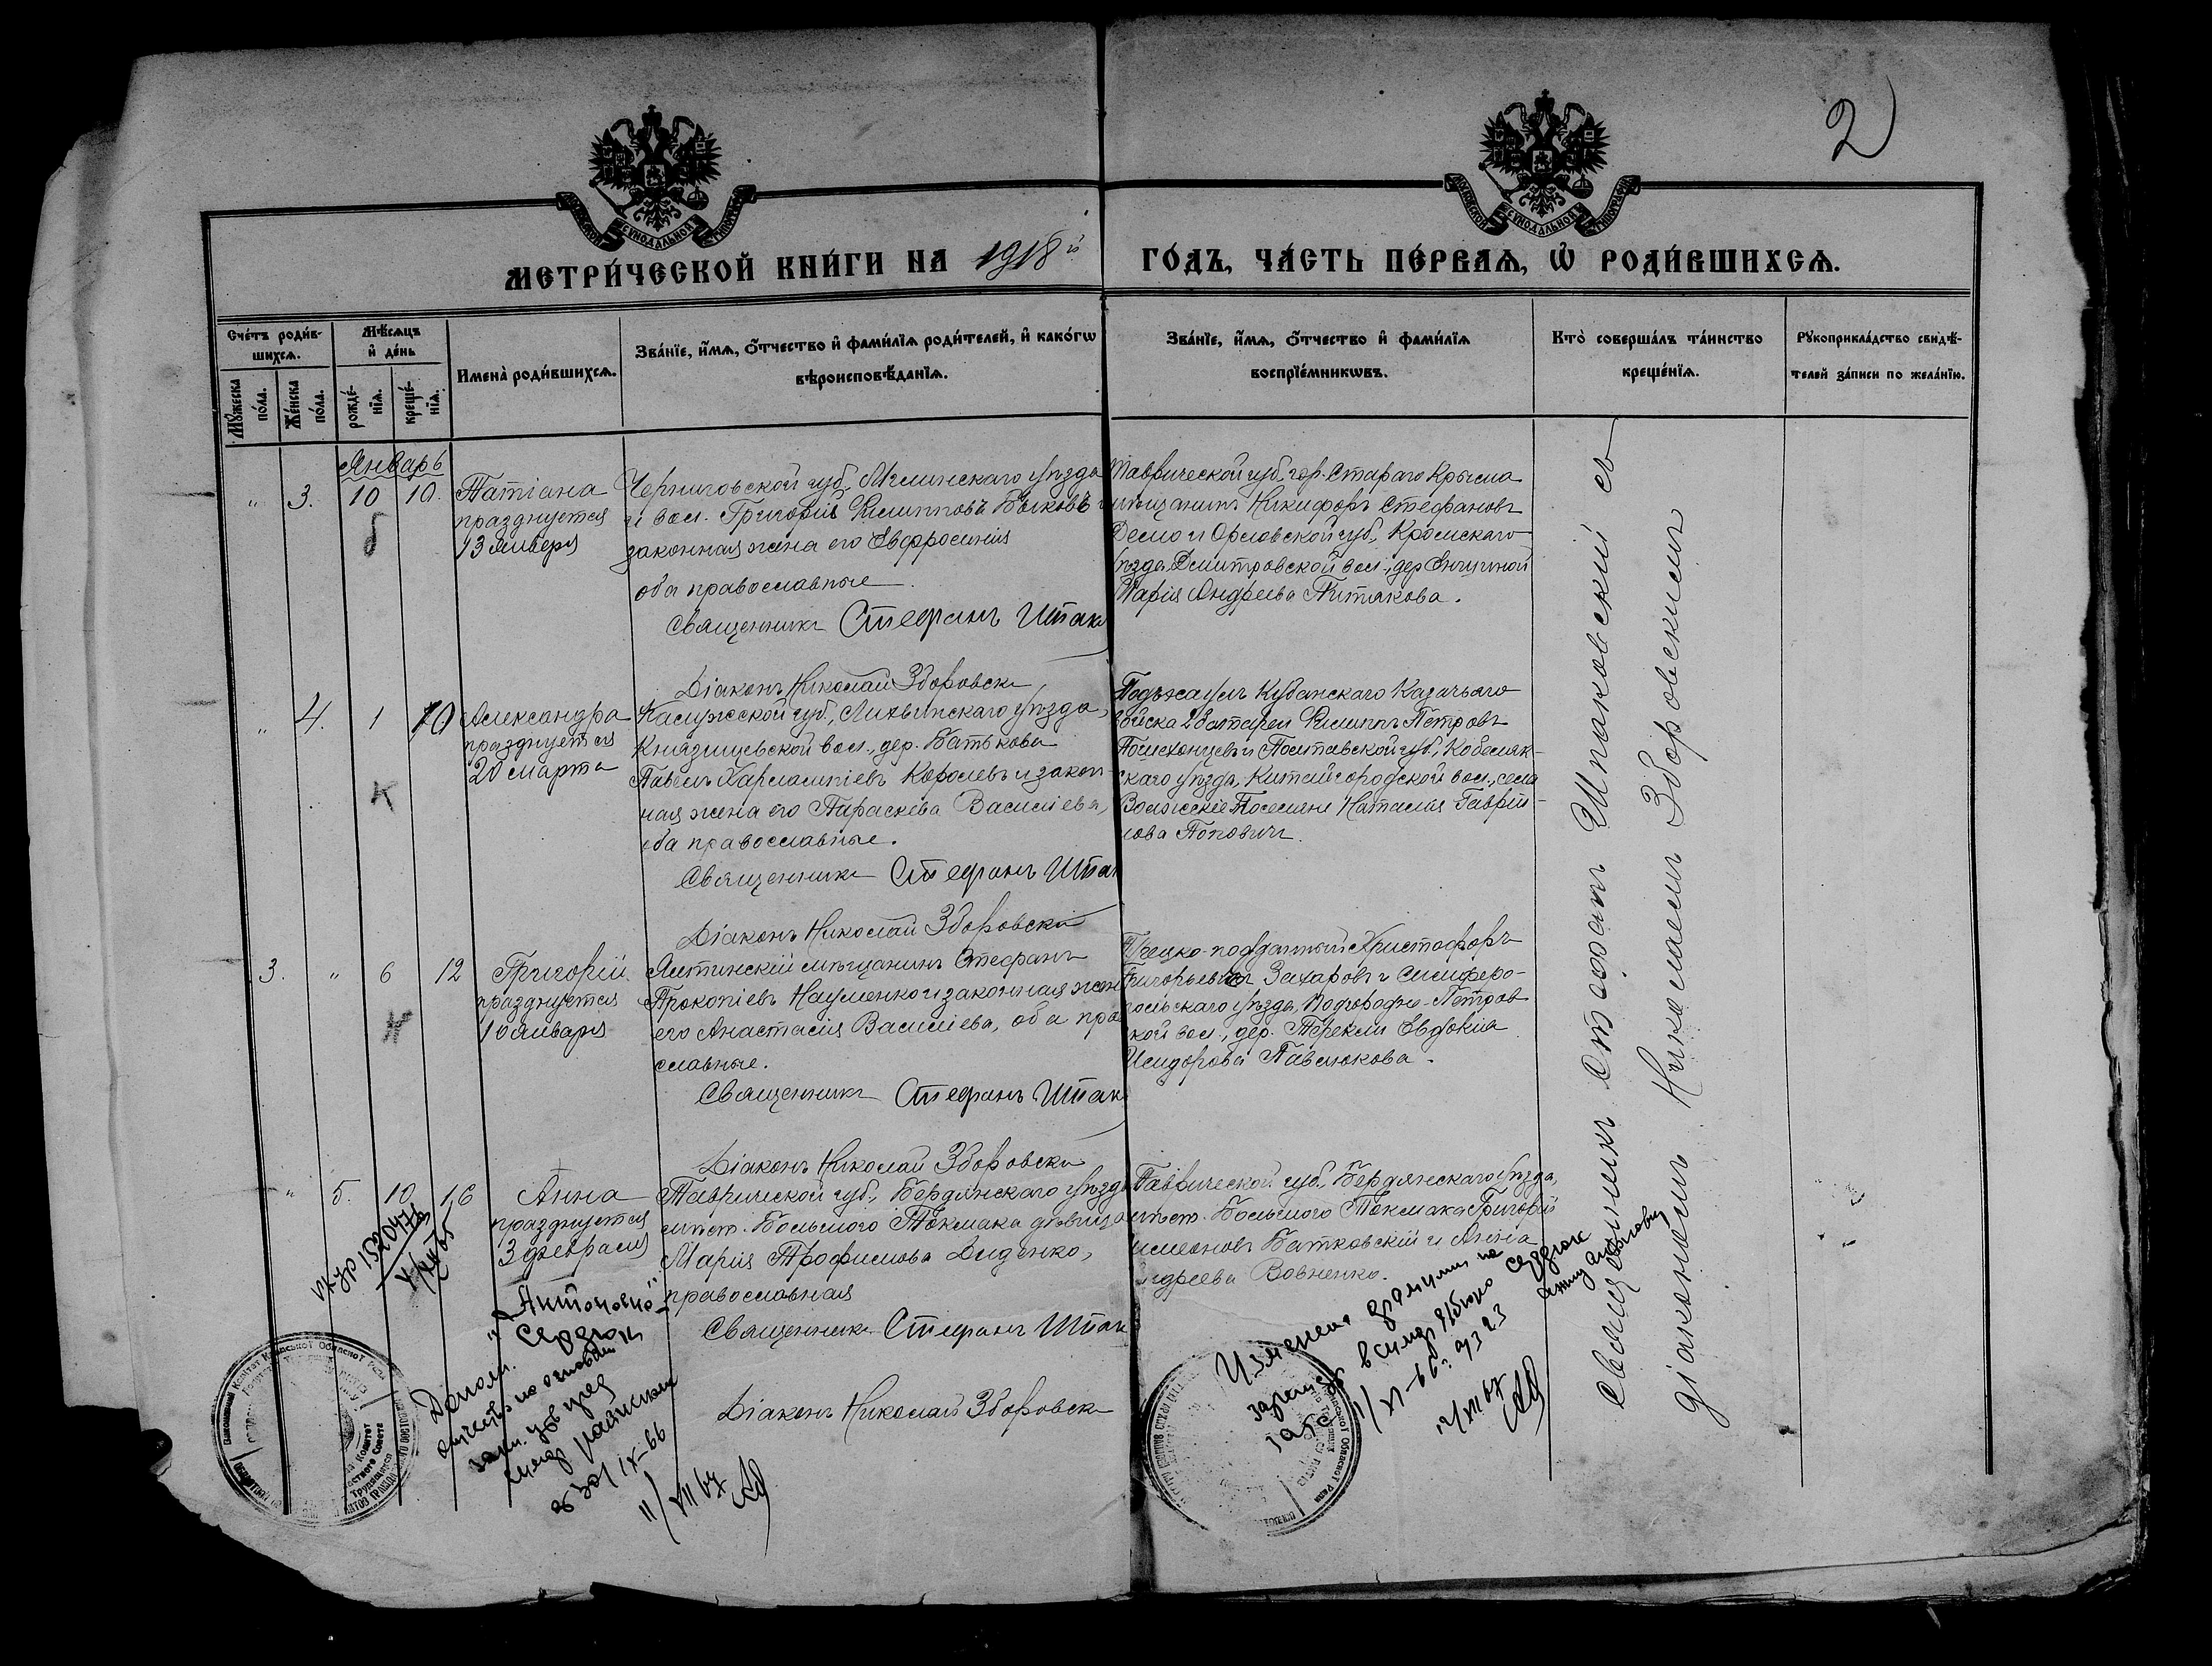 2
МЕТРИ́ЧЕСКОЙ КНИ́ГИ НА 1918й ГО́ДЪ, ЧА́СТЬ ПЕ́РВАѦ, Ѡ҆ РОДИ́ВШИХСѦ.
Сче́тъ роди́вшихсѧ.
Мꙋ́жеска по́ла.
Же́нска по́ла.
Мѣ́сѧцъ и҆ де́нь
рожде́нїѧ.
креще́нїѧ.
Имена̀ роди́вшихсѧ.
Зва́нїе, и҆́мѧ, ѻ҆́тчество и҆ фами́лїѧ роди́телей, и҆ како́гѡ
вѣроисповѣ́данїѧ.
Зва́нїе, и҆́мѧ, ѻ҆́тчество и҆ фами́лїѧ
воспрїе́мникѡвъ.
Кто̀ соверша́лъ та́инство
креще́нїѧ.
Рꙋкоприкла́дство свидѣ́-
телей за́писи по жела́нїю.
Январь
" 3. 10 10.
Татіана
празднуется
13 января
Черниговской губ., Мглинскаго уѣзда
и вол. Григорій Филипповъ Быковъ и
законная жена его Евфросинія
оба православные.
Священникъ Стефанъ Шпак
Діаконъ Николай Зборовски
Таврической губ. гор. Стараго Крыма
мѣщанинъ Никифоръ Стефановъ
Демо и Орловской губ., Кромскаго
уѣзда, Дмитровской вол., дер.
Марія Андреева
" 4. 1 10
Александра
празднуется
20 марта
Калужской губ., Лихвинскаго уѣзда,
Князищевской вол., дер. Батькова
Павелъ Харлампіевъ Королевъ и закон-
ная жена его Параскева Василіева,
оба православные.
Священникъ Стефанъ Шпак
Діаконъ Николай Зборовски
Подъесаулъ Кубанскаго Казачьяго
войска 2 батареи Филиппъ Петровъ
Пошехонцевъ и Полтавской губ., Кобеляк-
скаго уѣзда, Китайгородской вол., села
Наталія Гаврии-
лова Поповичъ.
3. " 6 12
Григорій
празднуется
10 января
Ялтинскій мѣщанинъ Стефанъ
Прокопіевъ Науменко и законная жена
его Анастасія Василіева, оба пра
славные.
Священникъ Стефанъ Шпак
Діаконъ Николай Зборовски
Грецко-подданный Христофоръ
Григорьевичъ Захаровъ и Симферо-
польскаго уѣзда, Подгородне-Петров
кой вол., дер. Терекли Евдокія
Исидорова Павлюкова.
" 5. 10 16
Анна
празднуется
3 февраля
Таврической губ., Бердянскаго уѣзда
мѣст. Большого Токмака дѣвица
Марія Трофимова Диденко,
православная
Священникъ Стефанъ Шпак
Діаконъ Николай Зборовски
Таврической губ., Бердянскаго уѣзда,
мѣст. Большого Токмака Григорій
Симеоновъ Батковскій и Анна
Андреева Вовненко.
Священникъ Стефанъ Шпаковскій съ
діакономъ Николаемъ Зборовскимъ
б
К
Н
1520476
"Антоновна"
Сердюк
Дополн.
отчество на основан
11/VII 67
Изменена фамилия на Сердюк